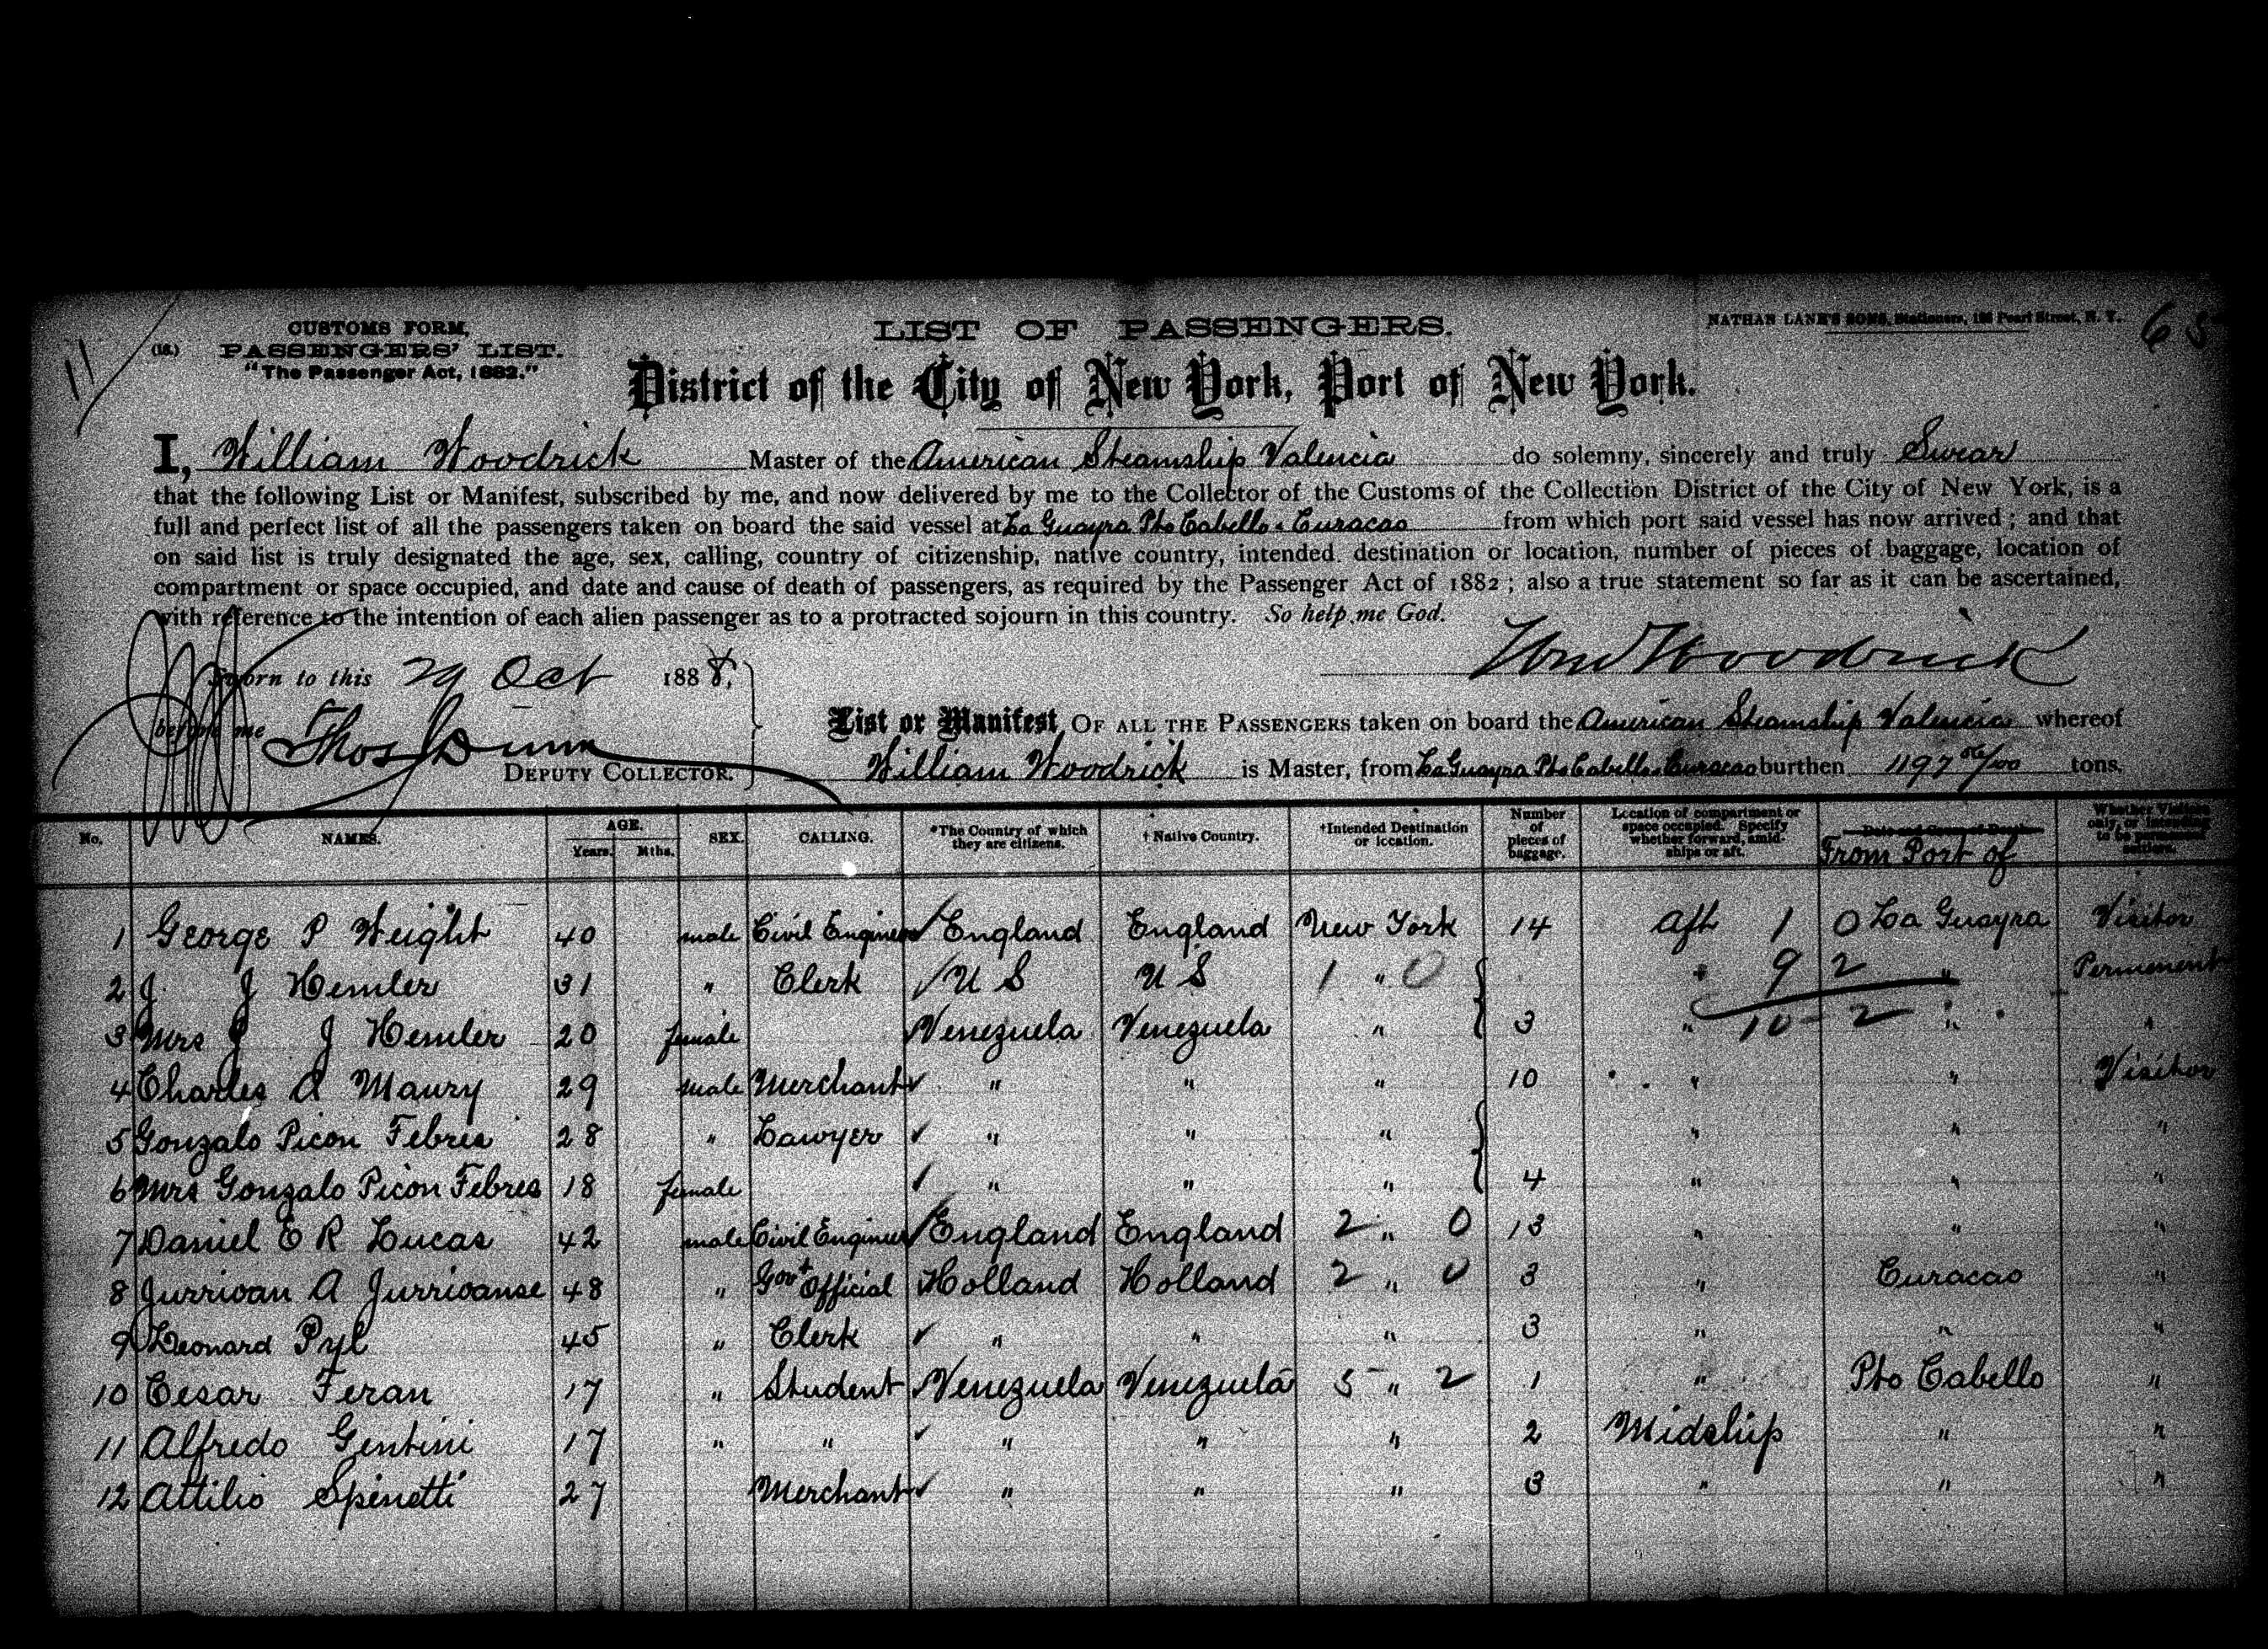 11
CUSTOMS FORM,
(16.) PASSENGERS' LIST.
"The Passenger Act, 1882."
LIST OF PASSENGERS.
NATHAN LANE'S SONS, Stationers, 188 Pearl Street, N. Y.
District of the City of New York, Port of New York.
I, William Woodrick Master of the American Steamship Valencia do solemny, sincerely and truly Swear
that the following List or Manifest, subscribed by me, and now delivered by me to the Collector of the Customs of the Collection District of the City of New York, is a
full and perfect list of all the passengers taken on board the said vessel at La Guayra Pto Cabello & Curacao from which port said vessel has now arrived; and that
on said list is truly designated the age, sex, calling, country of citizenship, native country, intended destination or location, number of pieces of baggage, location of
compartment or space occupied, and date and cause of death of passengers, as required by the Passenger Act of 1882; also a true statement so far as it can be ascertained,
with reference to the intention of each alien passenger as to a protracted sojourn in this country. So help me God.
Wm Woodrick
Sworn to this 29 Oct 1888,
before me Thos J Dunn
DEPUTY COLLECTOR.
List or Manifest OF ALL THE PASSENGERS taken on board the American Steamship Valencia whereof
William Woodrick is Master, from La Guayra Pto Cabello & Curacao burthen 1197 56/100 tons.
No. NAMES. AGE. Years. Mths. SEX. CALLING. *The Country of which they are citizens. † Native Country. †Intended Destination or location. Number of pieces of baggage. Location of compartment or space occupied. Specify whether forward, amidships or aft. Date and Cause of Death From Port of Whether Visitors only, or intending to be permanent settlers.
1 George P Weight 40 male Civil Engineer England England New York 14 Aft 1 0 La Guayra Visitor
2 J J Hemler 31 " Clerk U S U S 1 " 0 " 9 2 " Permenent
3 Mrs J J Hemler 20 female Venezuela Venezuela " 3 " 10 - 2 " "
4 Charles A Maury 29 male Merchant " " " 10 " " Visitor
5 Gonzalo Picon Febres 28 " Lawyer " " " " " "
6 Mrs Gonzalo Picon Febres 18 female " " " 4 " " "
7 Daniel E R Lucas 42 male Civil Engineer England England 2 " 0 13 " " "
8 Jurrioan A Jurrioanse 48 " Govt Official Holland Holland 2 " 0 3 " Curacao "
9 Leonard Pyl 45 " Clerk " " " 3 " " "
10 Cesar Feran 17 " Student Venezuela Venezuela 5 " 2 1 " Pto Cabello "
11 Alfredo Gentini 17 " " " " " 2 Midship " "
12 Attilio Spinetti 27 Merchant " " " 3 " " "